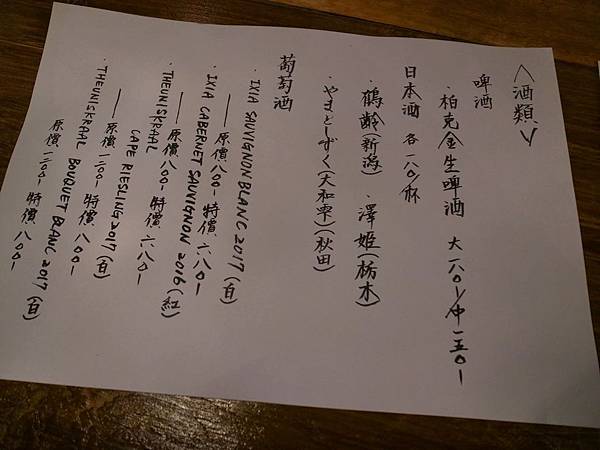 〈酒類〉
啤酒
・柏克金生啤酒 大一八〇-/中一五〇-
日本酒 各一八〇/杯
・鶴齡(新潟)・澤姬(栃木)
・やまとしずく(大和雫)(秋田)
葡萄酒
・IXIA SAUVIGNON BLANC 2017(白)
—原價八〇〇- 特價六八〇-
・IXIA CABERNET SAUVIGNON 2016(紅)
—原價八〇〇- 特價六八〇-
・THEUNISKRAAL
CAPE RIESLING 2017(白)
—原價一二〇〇- 特價八〇〇-
・THEUNISKRAAL BOUQUET BLANC 2017(白)
原價一二〇〇- 特價八〇〇-